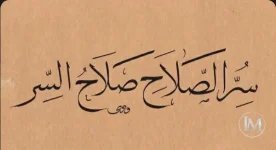 سِرُّ الصَّلَاحِ صَلَاحُ السِّر
LM